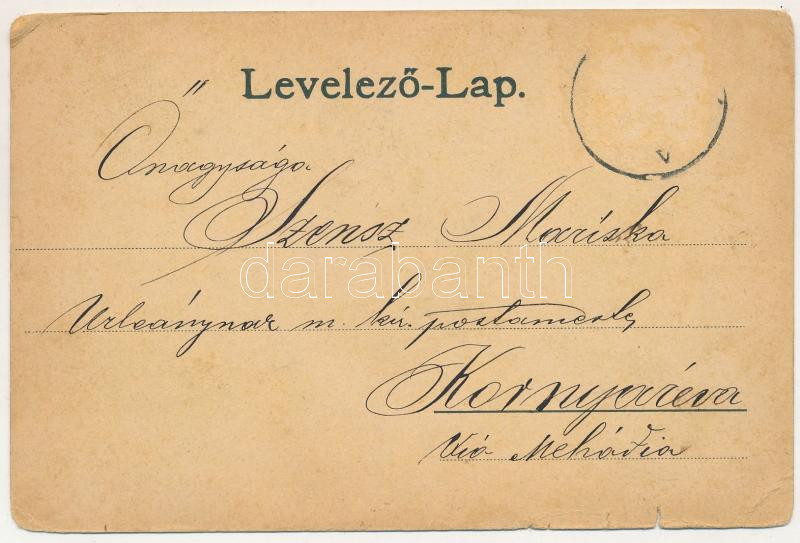 Levelező-Lap.
Őnagysága
Szensz Mariska
Urleánynak m. kir. postamester
Kornyaréva
Via Mehádia
darabanth
V